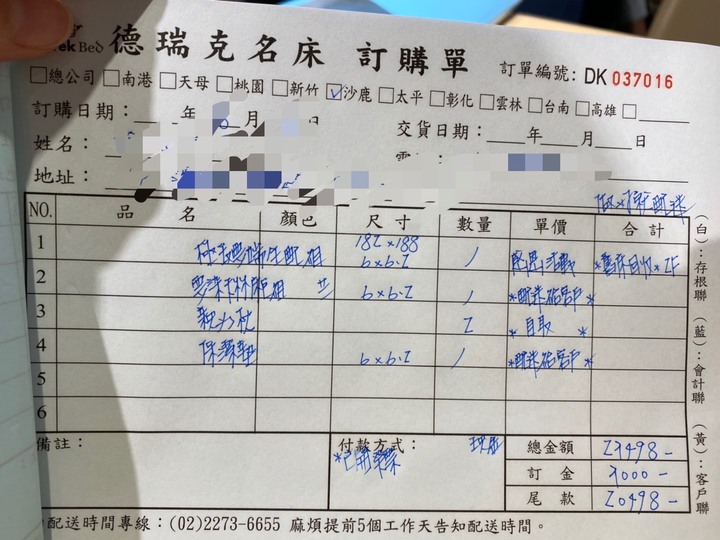 ekBed 德瑞克名床 訂購單 訂單編號: DK 037016
□總公司 □南港 □天母 □桃園 □新竹 ☑沙鹿 □太平 □彰化 □雲林 □台南 □高雄 □
訂購日期: 年 月 日 交貨日期: 年 月 日
姓名:
地址:
NO. 品名 顏色 尺寸 數量 單價 合計
182×188
1 6×6.2 1 *舊床回收*2F
2 6×6.2 1 *配送給客戶*
3 2 *自取*
4 保潔墊 6×6.2 1 *配送給客戶*
5
6
備註: 付款方式: 總金額 29498-
*已開發票 訂金 9000-
尾款 20498-
配送時間專線:(02)2273-6655 麻煩提前5個工作天告知配送時間。
(白):存根聯 (藍):會計聯 (黃):客戶聯